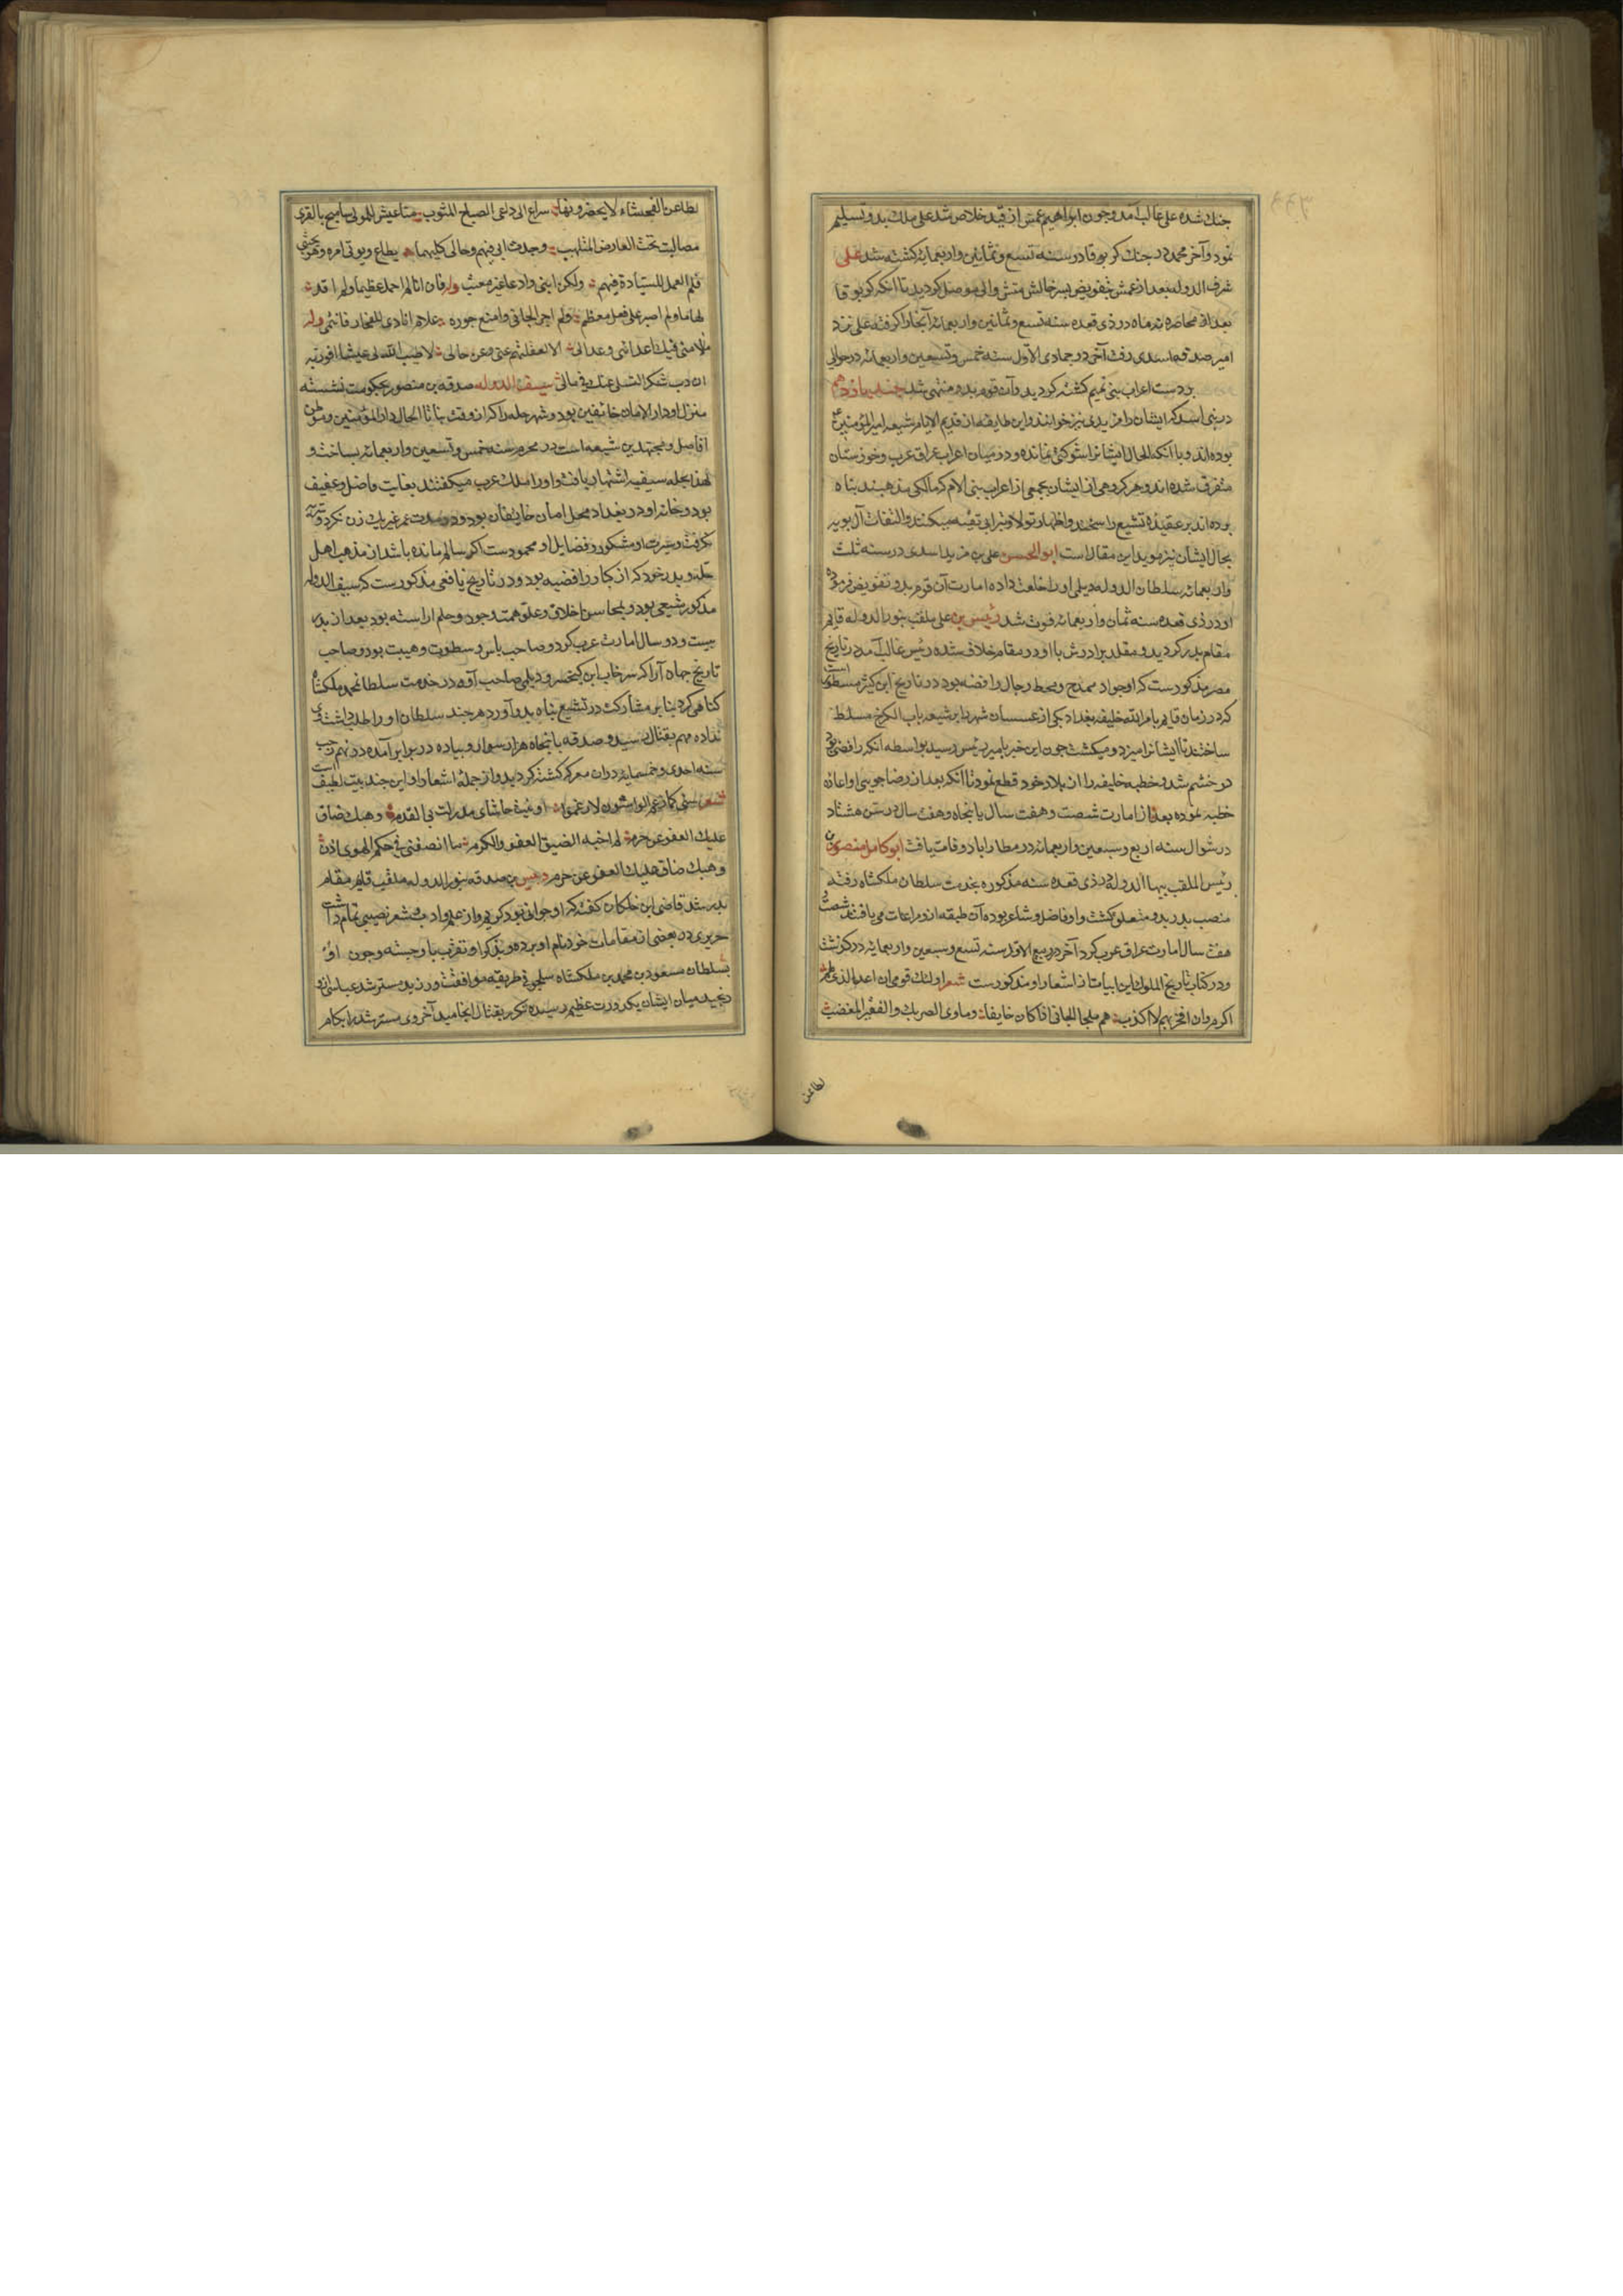 جنك شده على غالب آمد و جون ابراهيم عمش از قيد خلاص شد على ملك بدو تسليم
نمود و آخر محمد در جنك كربوقا در سنه تسع و ثمانين و اربعمايه كشته شد على
شرف الدوله بعد از عمش بتفويض پسر خالش متش والى موصل كرديد تا آنكه كربوقا
بعد از محاصره نه ماه در ذى قعده سنه تسع و ثمانين و اربعمايه آنجا را كرفته على نزد
امير صدقه اسدى رفت آخر در جمادى الاول سنه خمس و تسعين و اربعمائه در حوالى
بر دست اعراب بنى نميم كشته كرديد و آن قوم بدو منتهى شد جند يازدهم
در بنى اسد كه ايشان را مزيدى نيز خوانند و اين طايفه از قديم الايام شيعه امير المؤمنين
بوده اند و با آنكه الحال ايشانرا شوكتى نمانده و در ميان اعراب عراق عرب و خوزستان
متفرق شده اند و هر كروهى از ايشان بجمعى از اعراب بنى لام كه مالكى مذهبند پناه
بوده اند بر عقيده تشيع راسخند و اظهار تولا و تبرا بى تقيه ميكنند و التفات آل بويه
بحال ايشان نيز مويد اين مقال است ابو الحسن على بن مزيد اسدى در سنه ثلث
و اربعمائه سلطان الدوله ديلمى او را خلعت داده امارت آن قوم بدو تفويض فرموده
او در ذى قعده سنه ثمان و اربعمائه فوت شد دبيس بن على ملقب بنور الدوله قايم
مقام پدر كرديد و مقلد برادرش با او در مقام خلاف شده دبيس غالب آمد در تاريخ
مصر مذكورست كه او جواد ممدح و محط رجال رافضه بود در تاريخ ابن كثير مسطور است
كه در زمان قايم بامر الله خليفه بغداد يكى از عسسان شهر را بر شيعه باب الكرخ مسلط
ساختند تا ايشانرا ميزد و ميكشت جون اين خبر بامير دبيس رسيد بواسطه آنكه رافضى بود
در خشم شد و خطبه خليفه را از بلاد خود قطع نمود تا آنكه بعد از رضا جويى او اعاده
خطبه نموده بعد از امارت شصت و هفت سال يا پنجاه و هفت سال در سن هشتاد
در شوال سنه اربع و سبعين و اربعمائه در مطار اباد وفات يافت ابو كامل منصور بن
دبيس الملقب ببها الدوله در ذى قعده سنه مذكوره بخدمت سلطان ملكشاه رفته
منصب پدر بدو متعلق كشت و او فاضل و شاعر بوده آن طبقه از و مراعات مى يافتند
هفت سال امارت عراق عرب كرد آخر در ربيع الاول سنه تسع و سبعين و اربعمايه در كذشت
و در كتاب تاريخ الملوك اين ابيات از اشعار او مذكورست شعر اولئك قومى ان اعد الذى لهم
اكرم وان افخر بهم لا اكذب هم ملجا الجانى اذا كان خايفا وماوى الضريك والفقير المعضب
لطاعن
لطاعن الفحشاء لا يحضرونها سراع الى داعى الصباح المثوب متاعيش للمولى مساميح بالقرى
مصاليت تحت العارض المتلهب وجدت ابى فيهم وخالى كليهما يطاع ويوتى امره وهو محتبى
فلم اتعمل للسيادة فيهم ولكن ابتنى وادعا غير معتب وله فان انا لم احمل عظيما ولم اقد
لهاما ولم اصبر على فعل معظم ولم اجر الجانى وامنع جوره علام انادى للفخار فانتمى وله
ملامتى فيك اعدائى وعذالى الا لغفلتهم عنى وعن حالى لا طيب الله لى عيشا افوز به
ان دب شكر التسلى عنك فى مالى سيف الدوله صدقه بن منصور بحكومت نشسته
منزل او دار الامان خائفين بود و شهر حله را كه از و قت بنا تا الحال دار المؤمنين و موطن
افاضل و مجتهدين شيعه است در محرم سنه خمس و تسعين و اربعمائه بساخت و
لهذا بحله سيفيه اشتهار يافت و او را ملك عرب ميكفتند بغايت فاضل و عفيف
بود و خانه او در بغداد محل امان خايفان بود و در مدت عمر غير يك زن نكرد و
نكرفت و سيرت او مشكور و فضايل او محمودست اكر سالم مانده باشد از مذهب اهل
حله و پدر خود كه از كبار رافضيه بود و در تاريخ يافعى مذكورست كه سيف الدوله
مذكور شيعى بود و بمحاسن اخلاق و علو همت و جود و حلم اراسته بود بعد از پدر
بيست و دو سال امارت عرب كرد و صاحب باس و سطوت و هيبت بود و صاحب
تاريخ جهان آرا كه سرخاب ابن كيخسرو ديلمى صاحب آوه در خدمت سلطان محمد ملكشاه
كناهى كرد بنا بر مشاركت در تشيع پناه بدو آورد هر جند سلطان او را طلب داشت
نداده مهم بقتال رسيد و صدقه با پنجاه هزار سوار و پياده در برابر آمده در نهم رجب
سنه احدى و خمسمايه در آن معركه كشته كرديد و از جمله اشعار او اين جند بيت لطيف است
شعر سنى كما زعم الواشون لا زعموا او غيت حاشاى مذ زلت بى القدم وهبك ضاق
عليك العفو عن جرم لم اخبه الضيق العفو والكرم ما انصفتنى فى حكم الهوى اذن
وهبك ضاق عليك العفو عن جرم دبيس بن صدقه بنور الدوله ملقب قايم مقام
پدر شد قاضى ابن خلكان كفته كه او جوانى بود كريم و از علم و ادب و شعر نصيبى تمام داشت
حريرى در بعضى از مقامات خود نام او برده و بذكر او تقرب باو جسته و جون او
بسلطان مسعود بن محمد بن ملكشاه سلجوقى طريقه موافقت ورزيد مسترشد عباسى از و
رنجيد ميان ايشان كدورت عظيم رسيده مكرر بقتال انجاميد آخر وى مسترشد را بكام